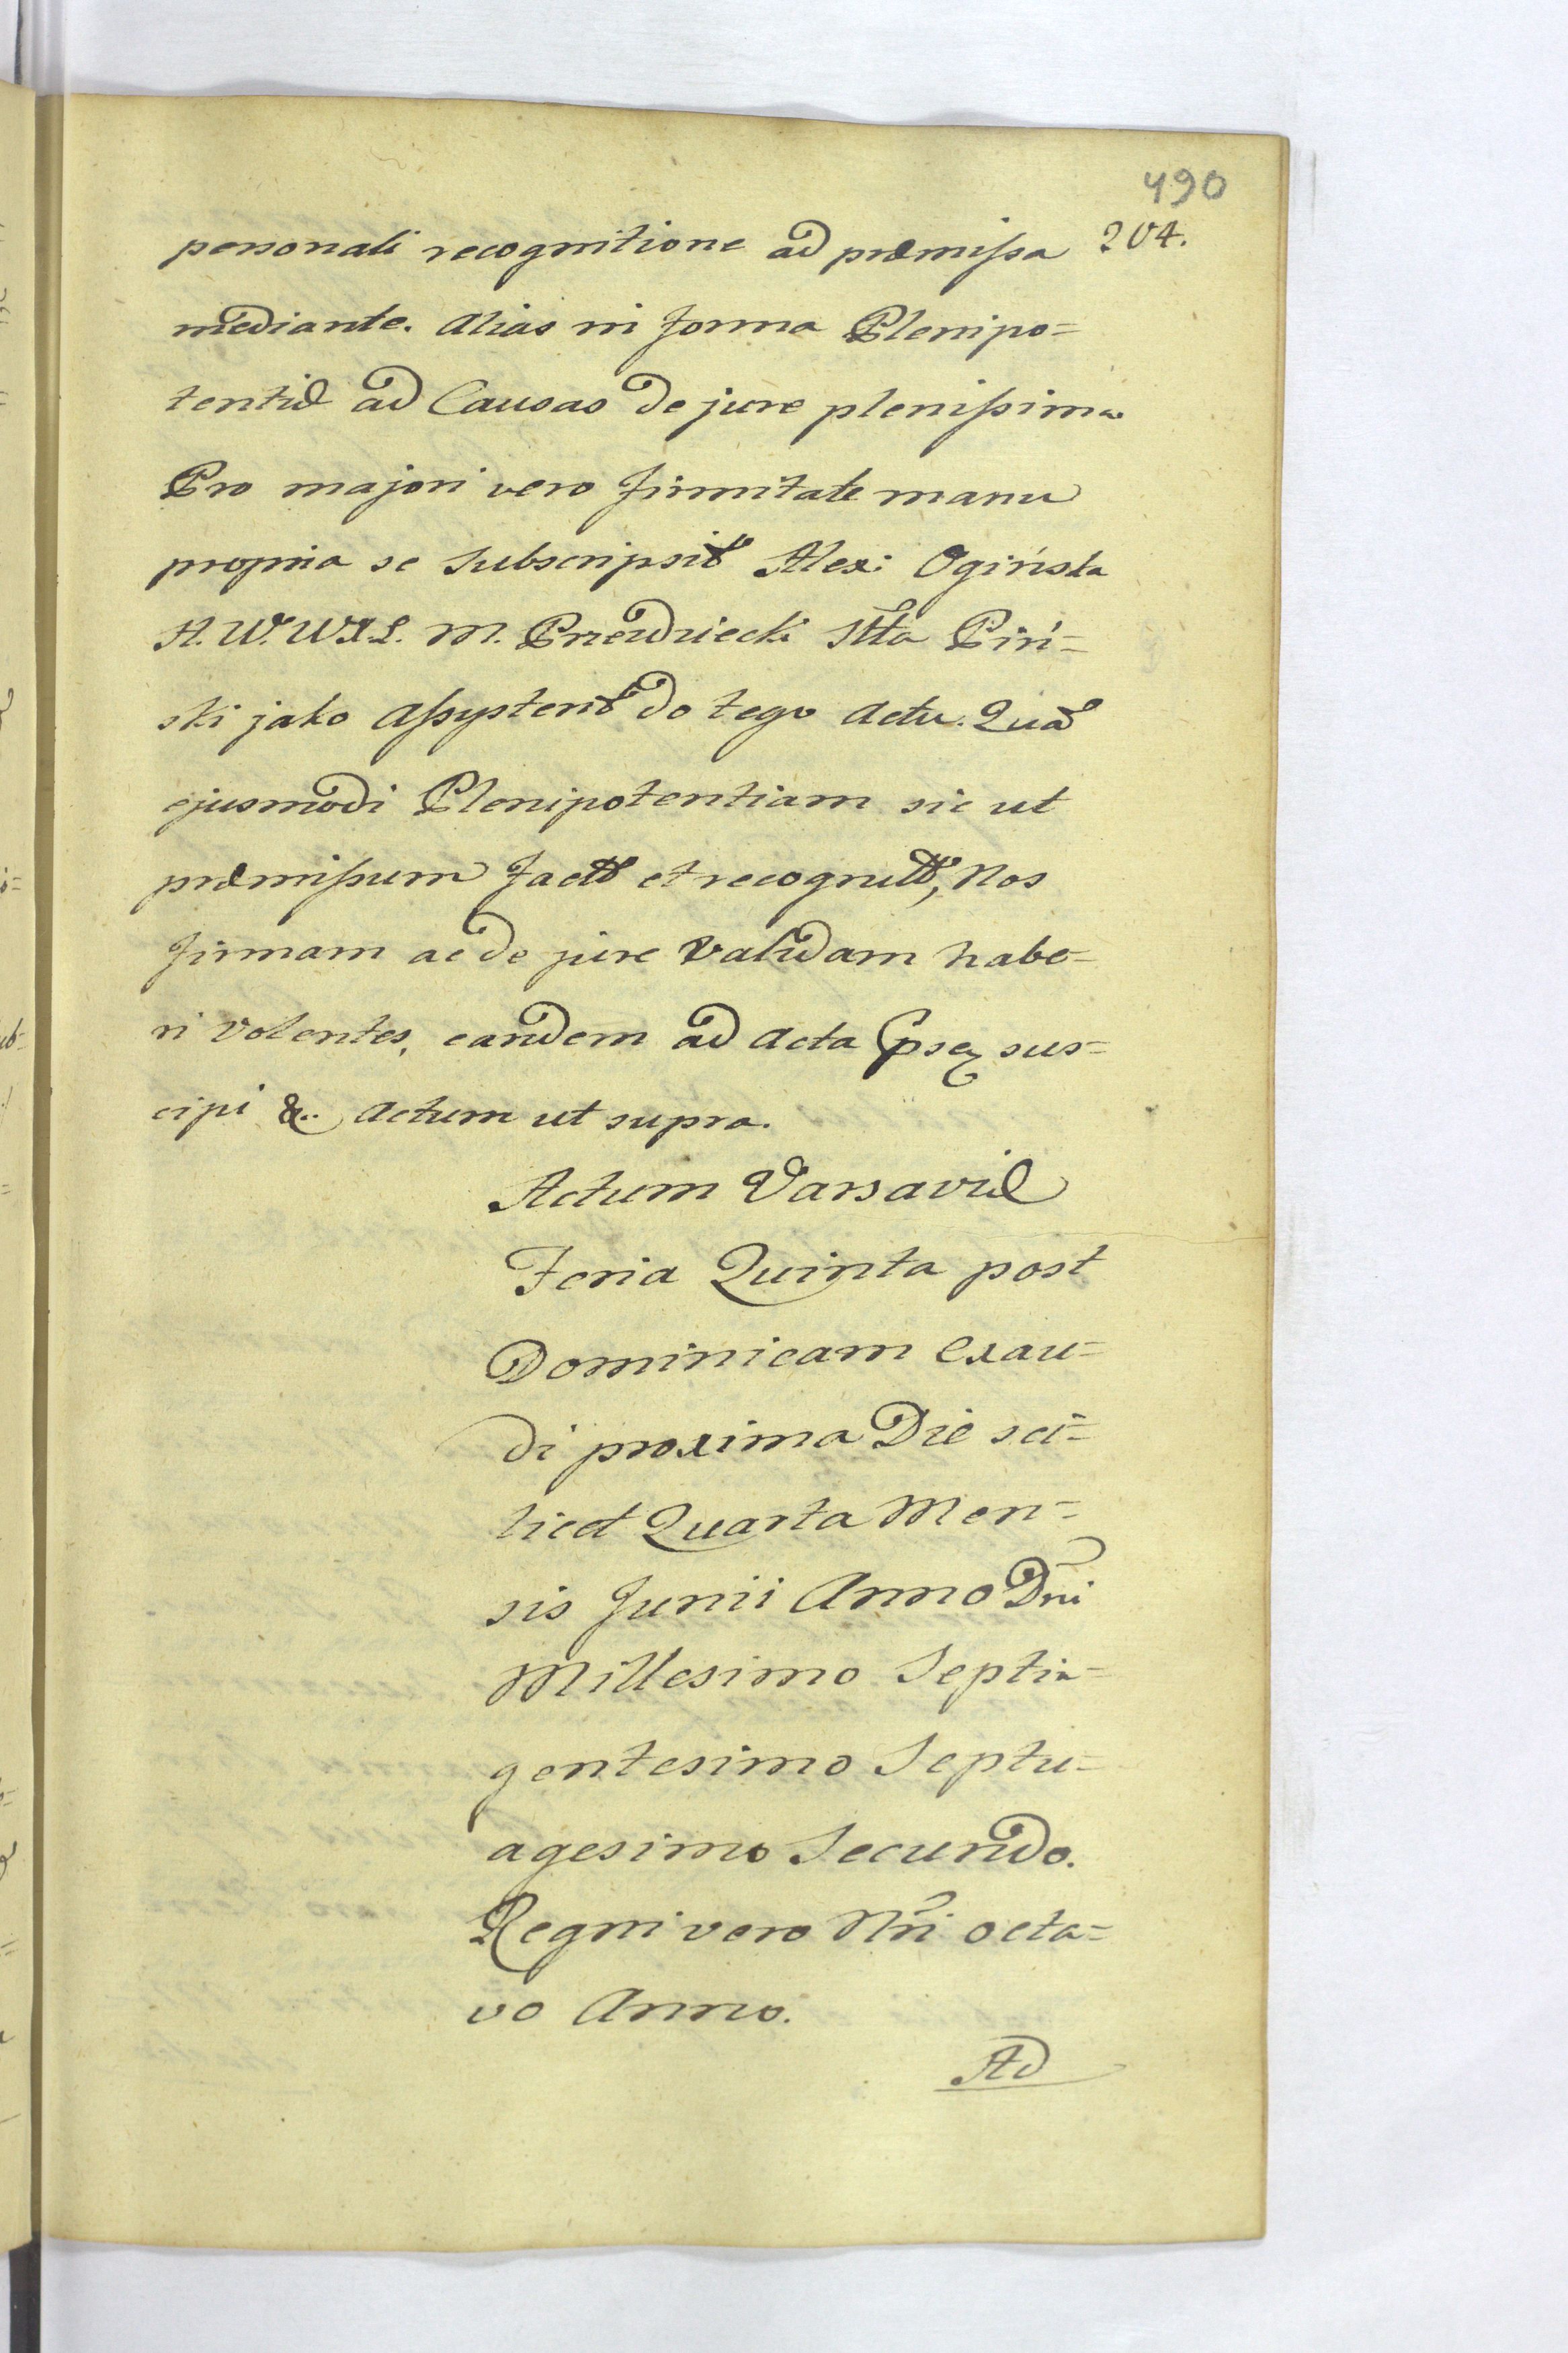 490
204.
personali recognitione ad præmissa
mediante. Alias in forma Plenipo=
tentiæ ad Causas de jure plenissima
Pro majori vero firmitate manu
propria se subscripsit Alex: Ogińska
H. W. W. X. L. M. Przezdziecki Stta Piń=
ski jako Assystent do tego Actu. Quã
ejusmodi Plenipotentiam sic ut
præmissum factã et recognitã, Nos
firmam ac de jure validam habe=
ri volentes, eandem ad Acta psa sus=
cipi &.. Actum ut supra.
Actum Varsaviæ
Feria Quinta post
Dominicam Exau=
di proxima Die sci=
licet Quarta Men=
sis Junii Anno Dni
Millesimo Septin=
gentesimo Septu=
agesimo Secundo.
Regni vero Nri octa=
vo Anno.
Ad